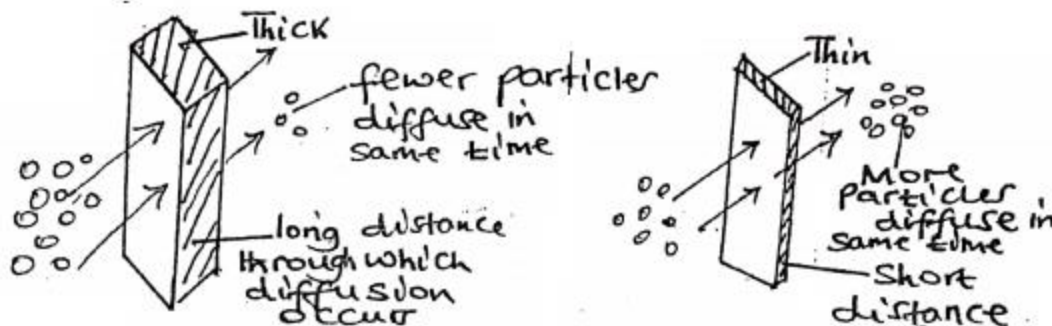 Thick
fewer particles
diffuse in
same time
long distance
through which
diffusion
occur
Thin
More
particles
diffuse in
same time
Short
distance